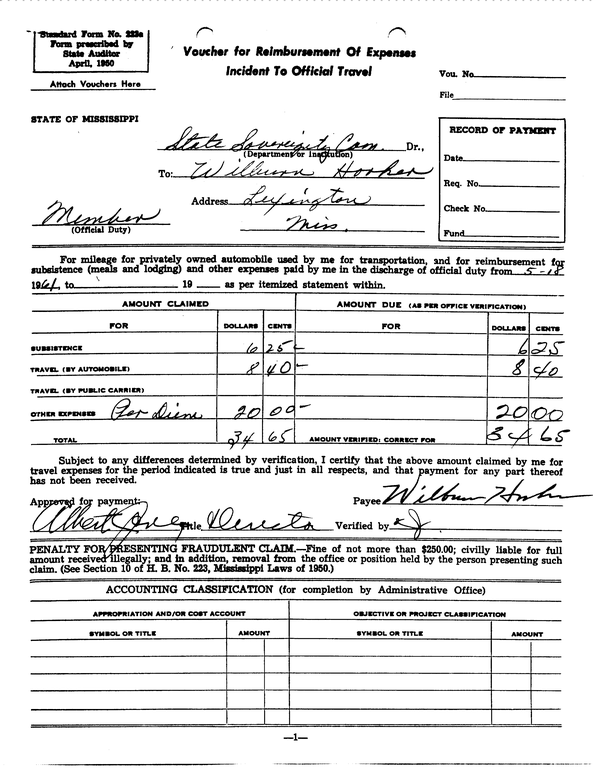 Standard Form No. 223a
Form prescribed by
State Auditor
April, 1950
Attach Vouchers Here
Voucher for Reimbursement Of Expenses
Incident To Official Travel
Vou. No.
File
STATE OF MISSISSIPPI
RECORD OF PAYMENT
Date
Req. No.
Check No.
Fund
State Sovereignty Com. Dr.,
(Department or Institution)
To: Wilburn Hooker
Address Lexington
Miss.
Member
(Official Duty)
For mileage for privately owned automobile used by me for transportation, and for reimbursement for
subsistence (meals and lodging) and other expenses paid by me in the discharge of official duty from 5-18
1961, to 19 as per itemized statement within.
AMOUNT CLAIMED AMOUNT DUE (AS PER OFFICE VERIFICATION)
FOR DOLLARS CENTS FOR DOLLARS CENTS
SUBSISTENCE 6 25 6 25
TRAVEL (BY AUTOMOBILE) 8 40 8 40
TRAVEL (BY PUBLIC CARRIER)
OTHER EXPENSES Per Diem 20 00 20 00
TOTAL 34 65 AMOUNT VERIFIED: CORRECT FOR 34 65
Subject to any differences determined by verification, I certify that the above amount claimed by me for
travel expenses for the period indicated is true and just in all respects, and that payment for any part thereof
has not been received.
Approved for payment: Payee Wilburn Hooker
Albert Jones Title Director Verified by
PENALTY FOR PRESENTING FRAUDULENT CLAIM.—Fine of not more than $250.00; civilly liable for full
amount received illegally; and in addition, removal from the office or position held by the person presenting such
claim. (See Section 10 of H. B. No. 223, Mississippi Laws of 1950.)
ACCOUNTING CLASSIFICATION (for completion by Administrative Office)
APPROPRIATION AND/OR COST ACCOUNT OBJECTIVE OR PROJECT CLASSIFICATION
SYMBOL OR TITLE AMOUNT SYMBOL OR TITLE AMOUNT
—1—